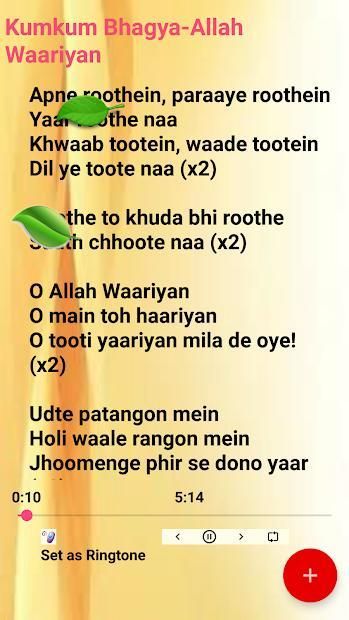 Kumkum Bhagya-Allah
Waariyan
Apne roothein, paraaye roothein
naa
Khwaab tootein, waade tootein
Dil ye toote naa (x2)
to khuda bhi roothe
chhoote naa (x2)
O Allah Waariyan
O main toh haariyan
O tooti yaariyan mila de oye!
(x2)
Udte patangon mein
Holi waale rangon mein
Jhoomenge phir se dono yaar
0:10
5:14
Set as Ringtone